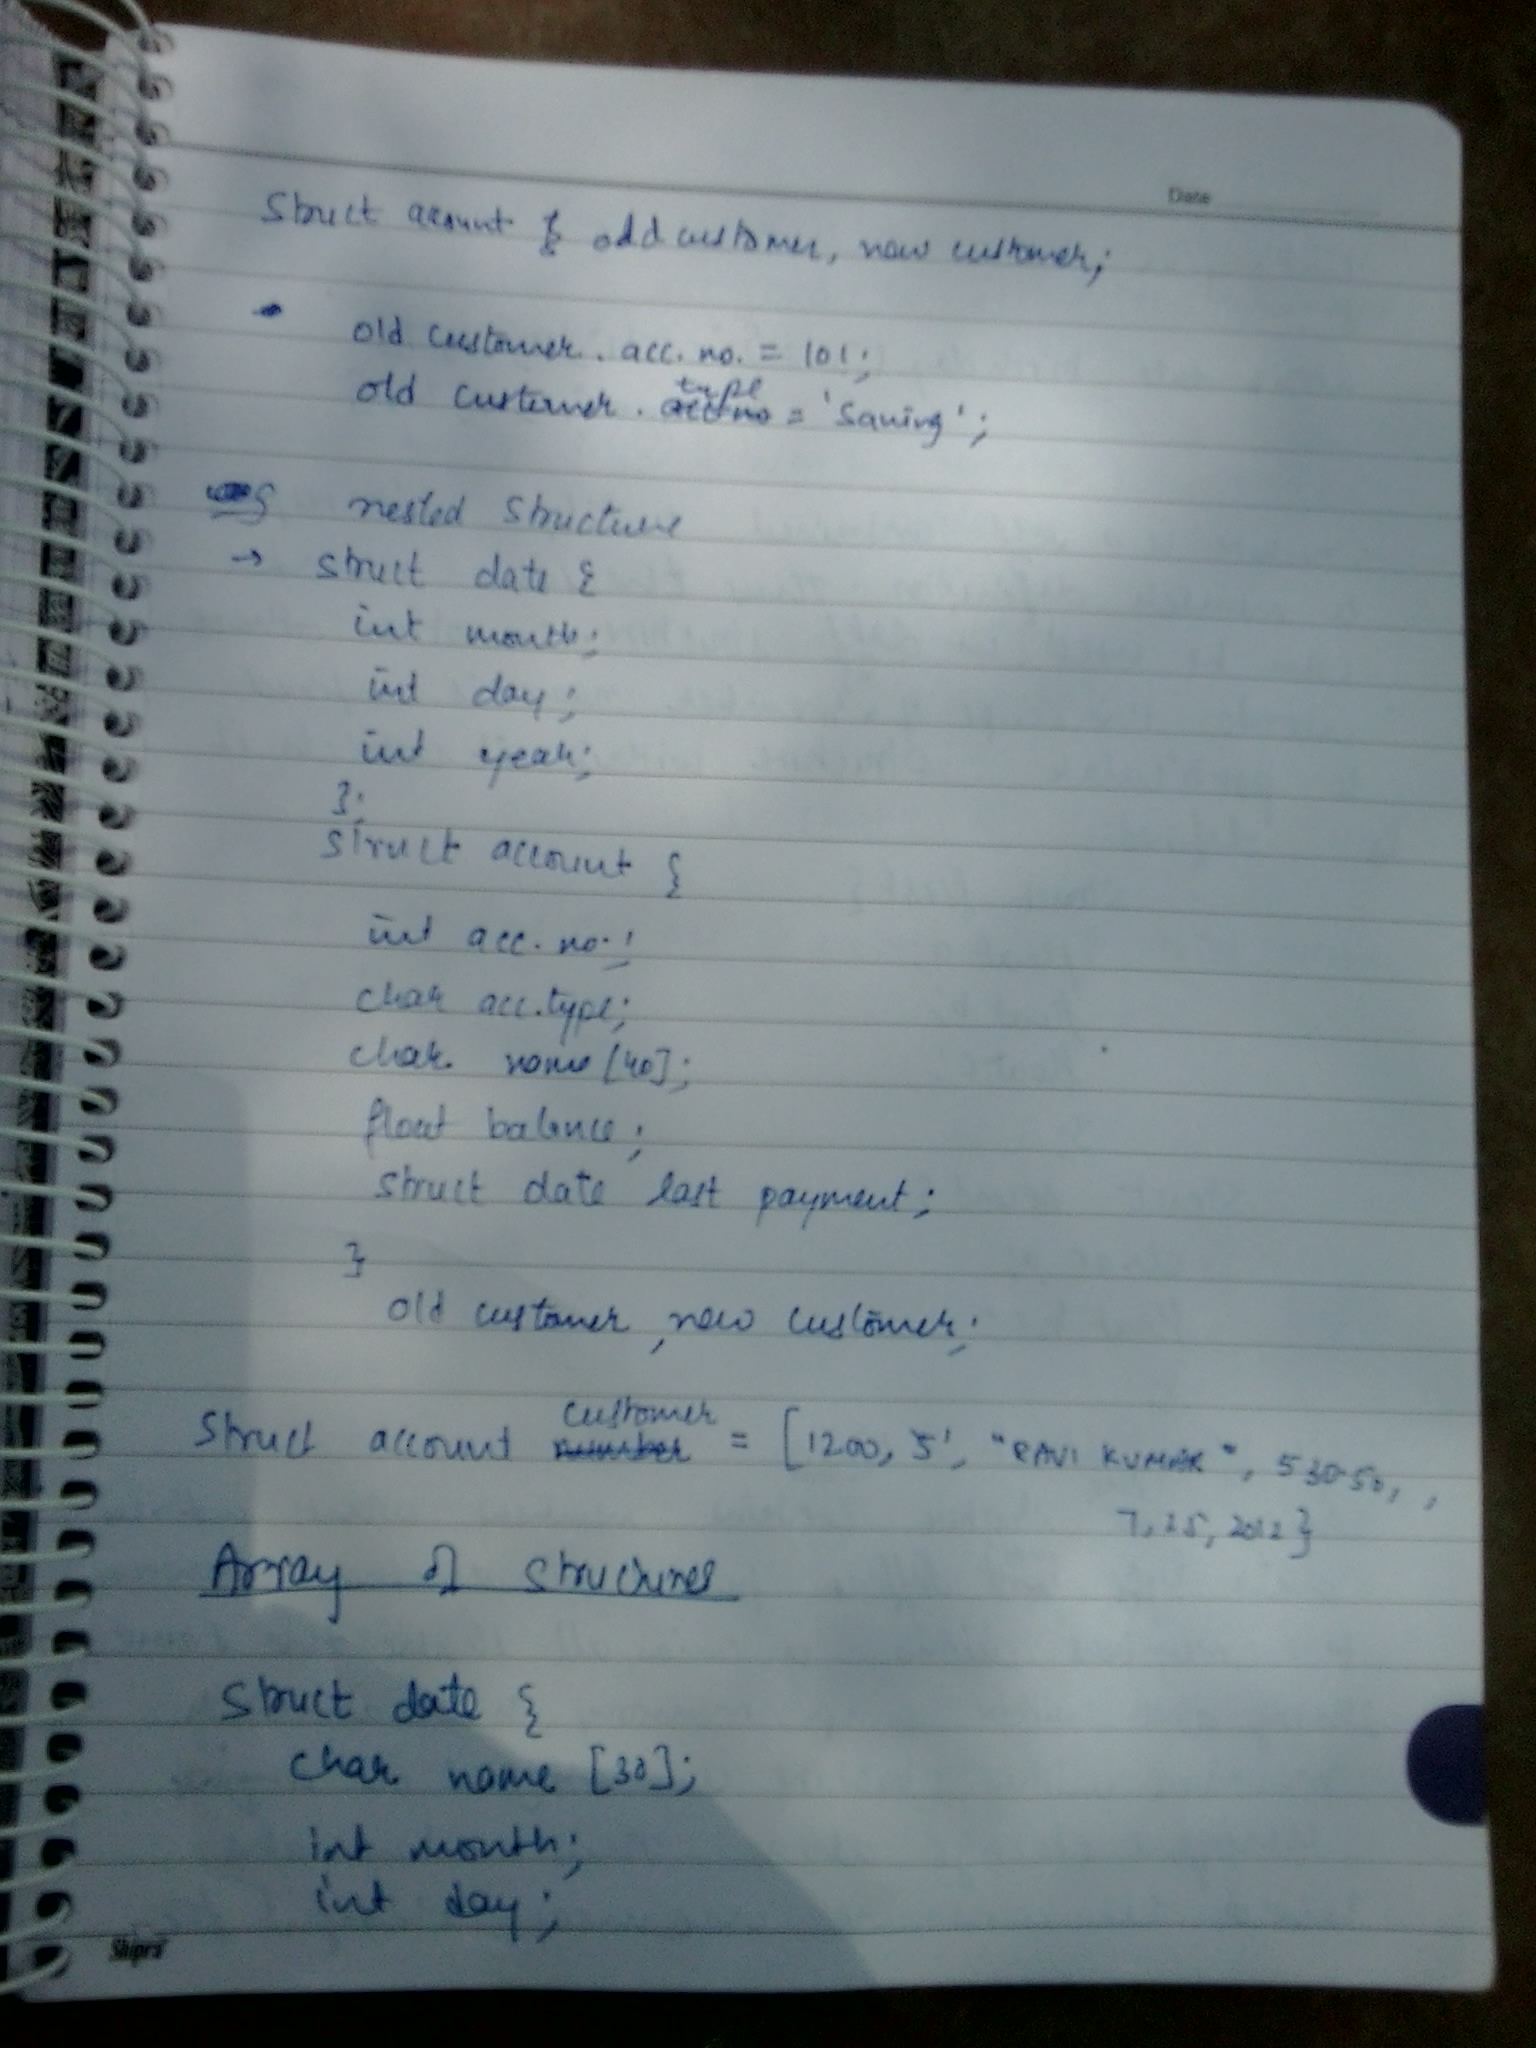 Date
Struct account { old customer, new customer;
old customer. acc. no. = 101;
old customer. type = 'Saving';
nested structure
→ struct date {
int month;
int day;
int year;
};
struct account {
int acc. no.;
char acc.type;
char name [40];
float balance;
struct date last payment;
}
old customer, new customer;
Struct account customer = [1200, 'S', "RAVI KUMAR", 530.50, ,
7, 25, 2012}
Array of structures
Struct date {
char name [30];
int month;
int day;
Shipra